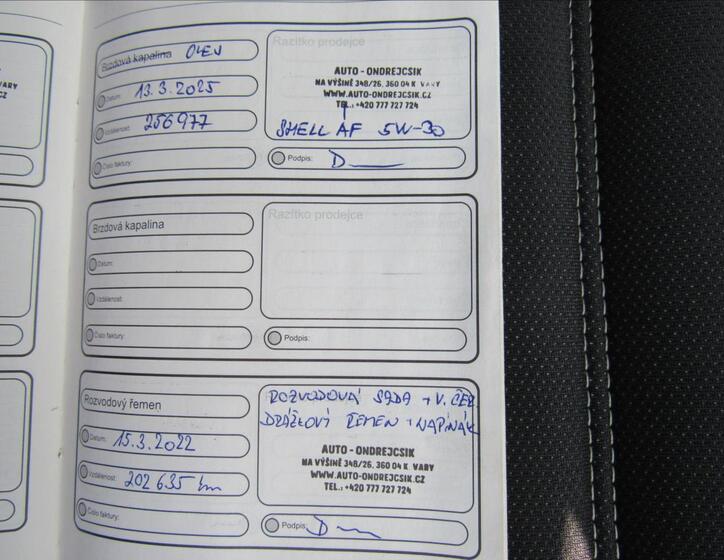 VARY
CZ
Brzdová kapalina OLEJ
Datum: 13.3.2025
Vzdálenost: 256977
Číslo faktury:
Razítko prodejce
AUTO - ONDREJCSIK
NA VÝŠINĚ 348/26, 360 04 K. VARY
WWW.AUTO-ONDREJCSIK.CZ
TEL.: +420 777 727 724
SHELL AF 5W-30
Podpis:
Brzdová kapalina
Datum:
Vzdálenost:
Číslo faktury:
Razítko prodejce
Podpis:
Rozvodový řemen
Datum: 15.3.2022
Vzdálenost: 202 635 km
Číslo faktury:
ROZVODOVÁ SADA + V. ČER.
DRÁŽKOVÝ ŘEMEN + NAPÍNÁK
AUTO - ONDREJCSIK
NA VÝŠINĚ 348/26, 360 04 K. VARY
WWW.AUTO-ONDREJCSIK.CZ
TEL.: +420 777 727 724
Podpis: